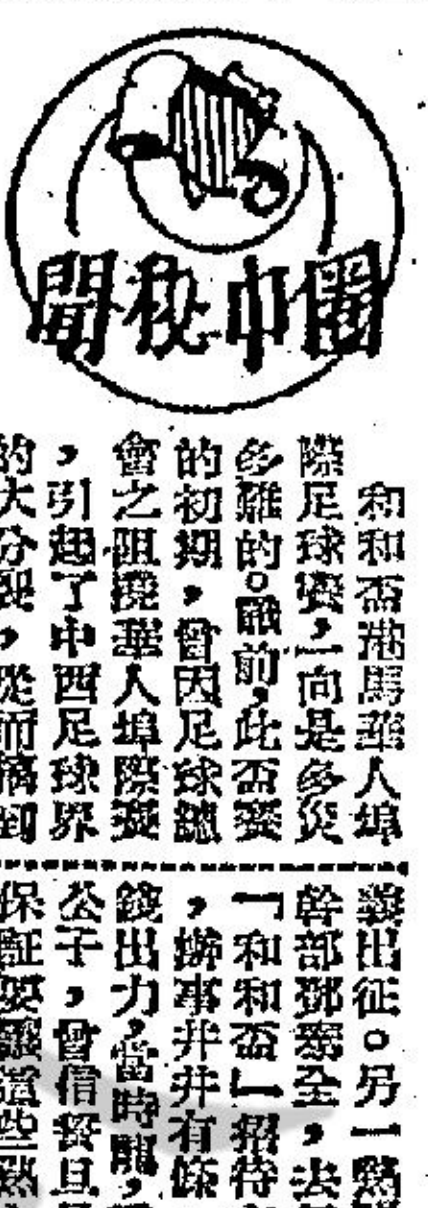 圈中秘聞
和和盃港馬華人埠
際足球賽，一向是多災
多難的。戰前，此盃賽
的初期，曾因足球總
會之阻撓華人埠際賽
，引起了中西足球界
的大分裂，從而搞到
義出征。另一熱
幹部鄧全，去
「和和盃」招待
，辦事井井有條
錢出力，當時龍，
公子，曾信誓旦
保証要這些熱